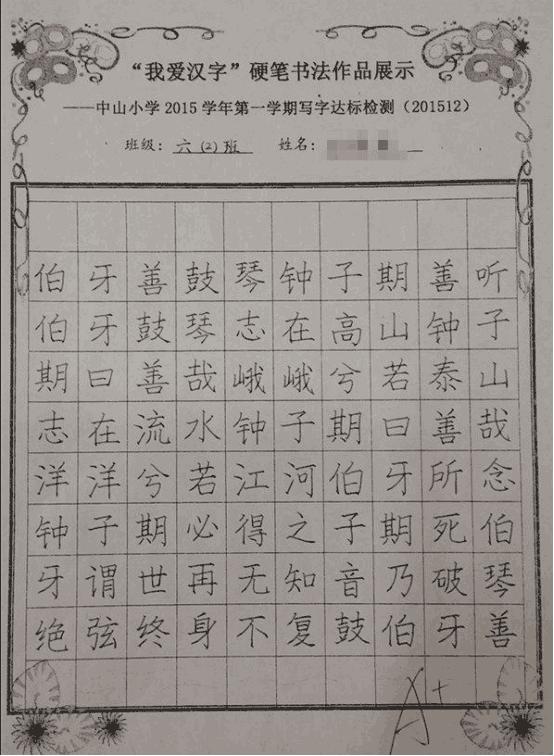 “我爱汉字”硬笔书法作品展示
——中山小学2015学年第一学期写字达标检测（201512）
班级：六(2)班 姓名：
伯牙善鼓琴钟子期善听
伯牙鼓琴志在高山钟子
期曰善哉峨峨兮若泰山
志在流水钟子期曰善哉
洋洋兮若江河伯牙所念
钟子期必得之子期死伯
牙谓世再无知音乃破琴
绝弦终身不复鼓伯牙善
A+